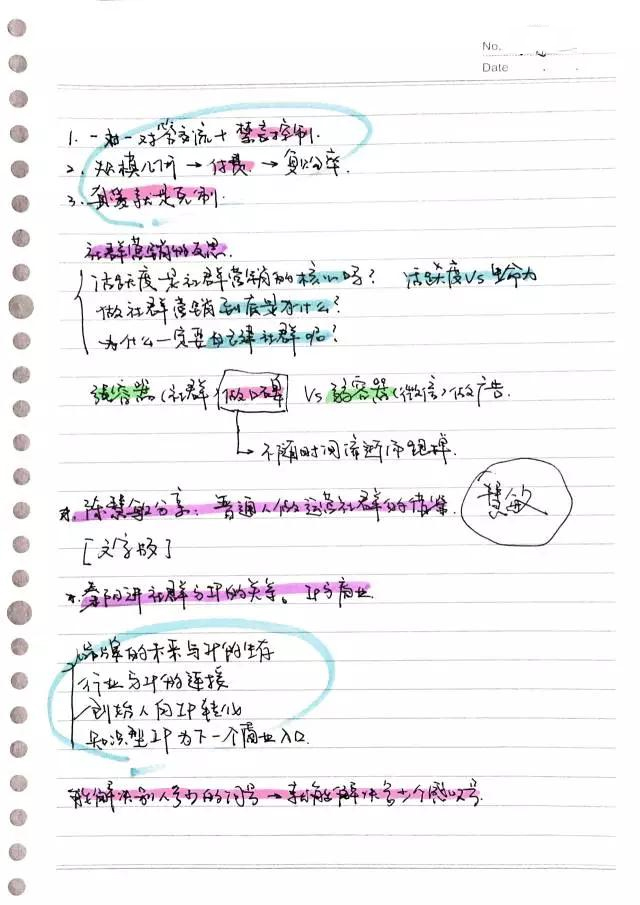 No.
Date
1. 一对一对答交流 + 禁言控制.
2. 规模几何 → 付费 → 复购率.
3. 真爱就是克制.
社群营销的反思.
活跃度是社群营销的核心吗? 活跃度Vs生命力
做社群营销到底是为什么?
为什么一定要自己建社群呢?
强容器(社群)做口碑 Vs 弱容器(微信)做广告.
→ 不随时间流逝而
*. 陈慧敏分享: 普通人做运营社群的 慧敏
[文字版]
*. 秦阳讲社群与IP的关系。IP与商业
品牌的未来与IP的生存
行业与IP的连接
创始人向IP转化
知识型IP为下一个商业入口.
能解决别人多少的问号 → 就能解决多少个感叹号.